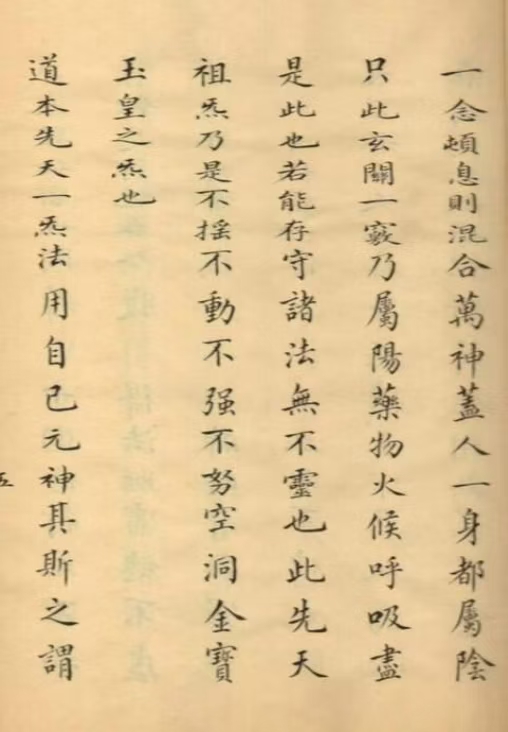 一念頓息則混合萬神蓋人一身都屬陰
只此玄關一竅乃屬陽藥物火候呼吸盡
是此也若能存守諸法無不靈也此先天
祖炁乃是不摇不動不强不努空洞金寶
玉皇之炁也
道本先天一炁法用自己元神其斯之謂
五